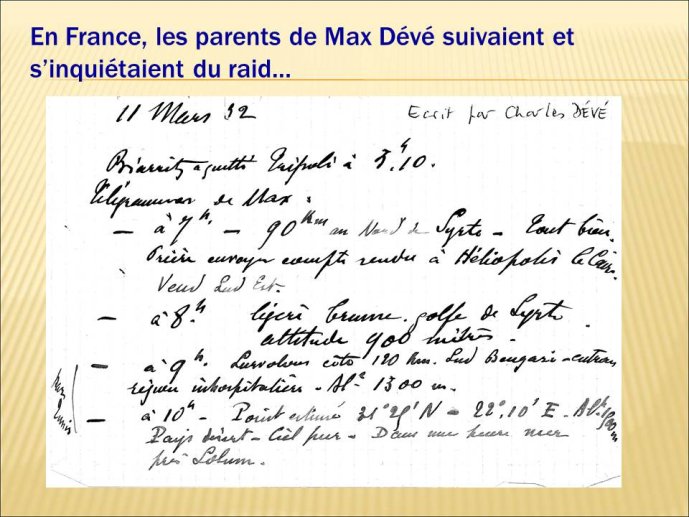 En France, les parents de Max Dévé suivaient et
s’inquiétaient du raid…
11 Mars 32
Ecrit par Charles DÉVÉ
Biarritz a quitté Tripoli à 3h,10.
Télégrammes de Max :
— à 7h. — 90km au Nord de Syrte — Tout bien.
Prière envoyer compte rendu à Héliopolis le Caire.
Vent Sud Est.
— à 8.h légère brume. golfe de Syrte.
altitude 900 mètres.
— à 9h. Survolons côte 120 Km. Sud Bengasi — entrons
région inhospitalière — Alt 1300 m.
— à 10h — Point estimé 31° N — 22°,10' E — Alt.
Pays désert — Ciel pur — Dans une heure mer
près Solum.